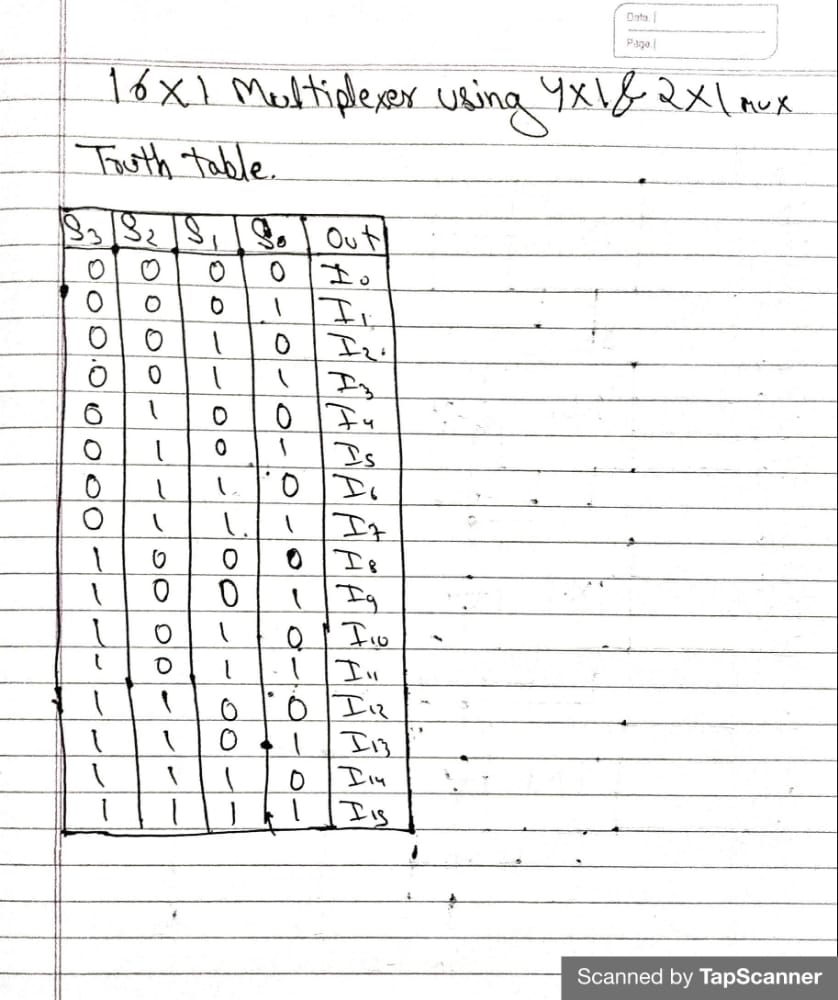 Date. |
Page. |
16x1 Multiplexer using 4x1 & 2x1 mux
Truth table.
S3 S2 S1 S0 Out
0 0 0 0 I0
0 0 0 1 I1
0 0 1 0 I2
0 0 1 1 I3
0 1 0 0 I4
0 1 0 1 I5
0 1 1 0 I6
0 1 1 1 I7
1 0 0 0 I8
1 0 0 1 I9
1 0 1 0 I10
1 0 1 1 I11
1 1 0 0 I12
1 1 0 1 I13
1 1 1 0 I14
1 1 1 1 I15
Scanned by TapScanner